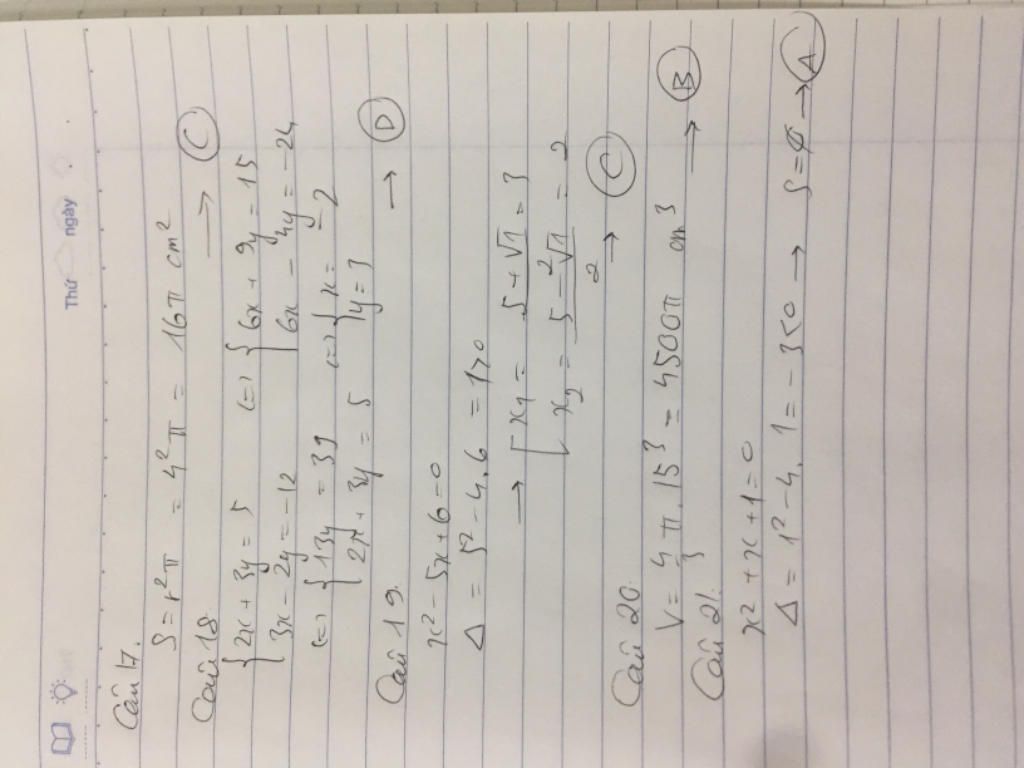 Thứ ngày
Câu 17.
S = r²π = 4²π = 16π cm² → C
Câu 18.
{ 2x + 3y = 5 (=) { 6x + 9y = 15
{ 3x - 2y = -12 { 6x - 4y = -24
(=) { 13y = 39 (=) { x = -2
{ 2x + 3y = 5 { y = 3 → D
Câu 19.
x² - 5x + 6 = 0
Δ = 5² - 4.6 = 1 > 0
→ [ x₁ = (5 + √1)/2 = 3
[ x₂ = (5 - √1)/2 = 2 → C
Câu 20.
V = 4/3 π . 15³ = 4500π cm³ → B
Câu 21.
x² + x + 1 = 0
Δ = 1² - 4.1 = -3 < 0 → S = ∅ → A